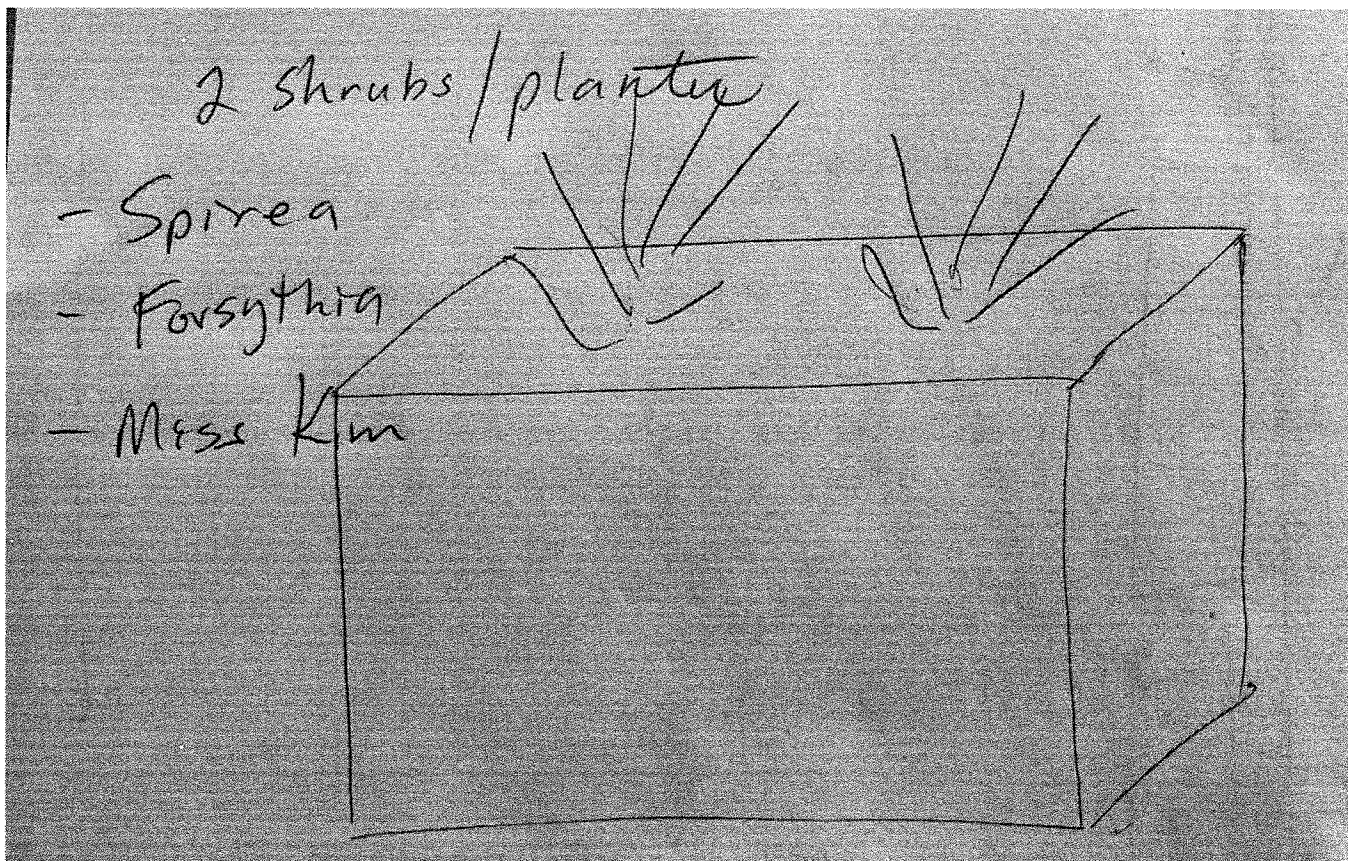 2 shrubs/planter
- Spirea
- Forsythia
- Miss Kim